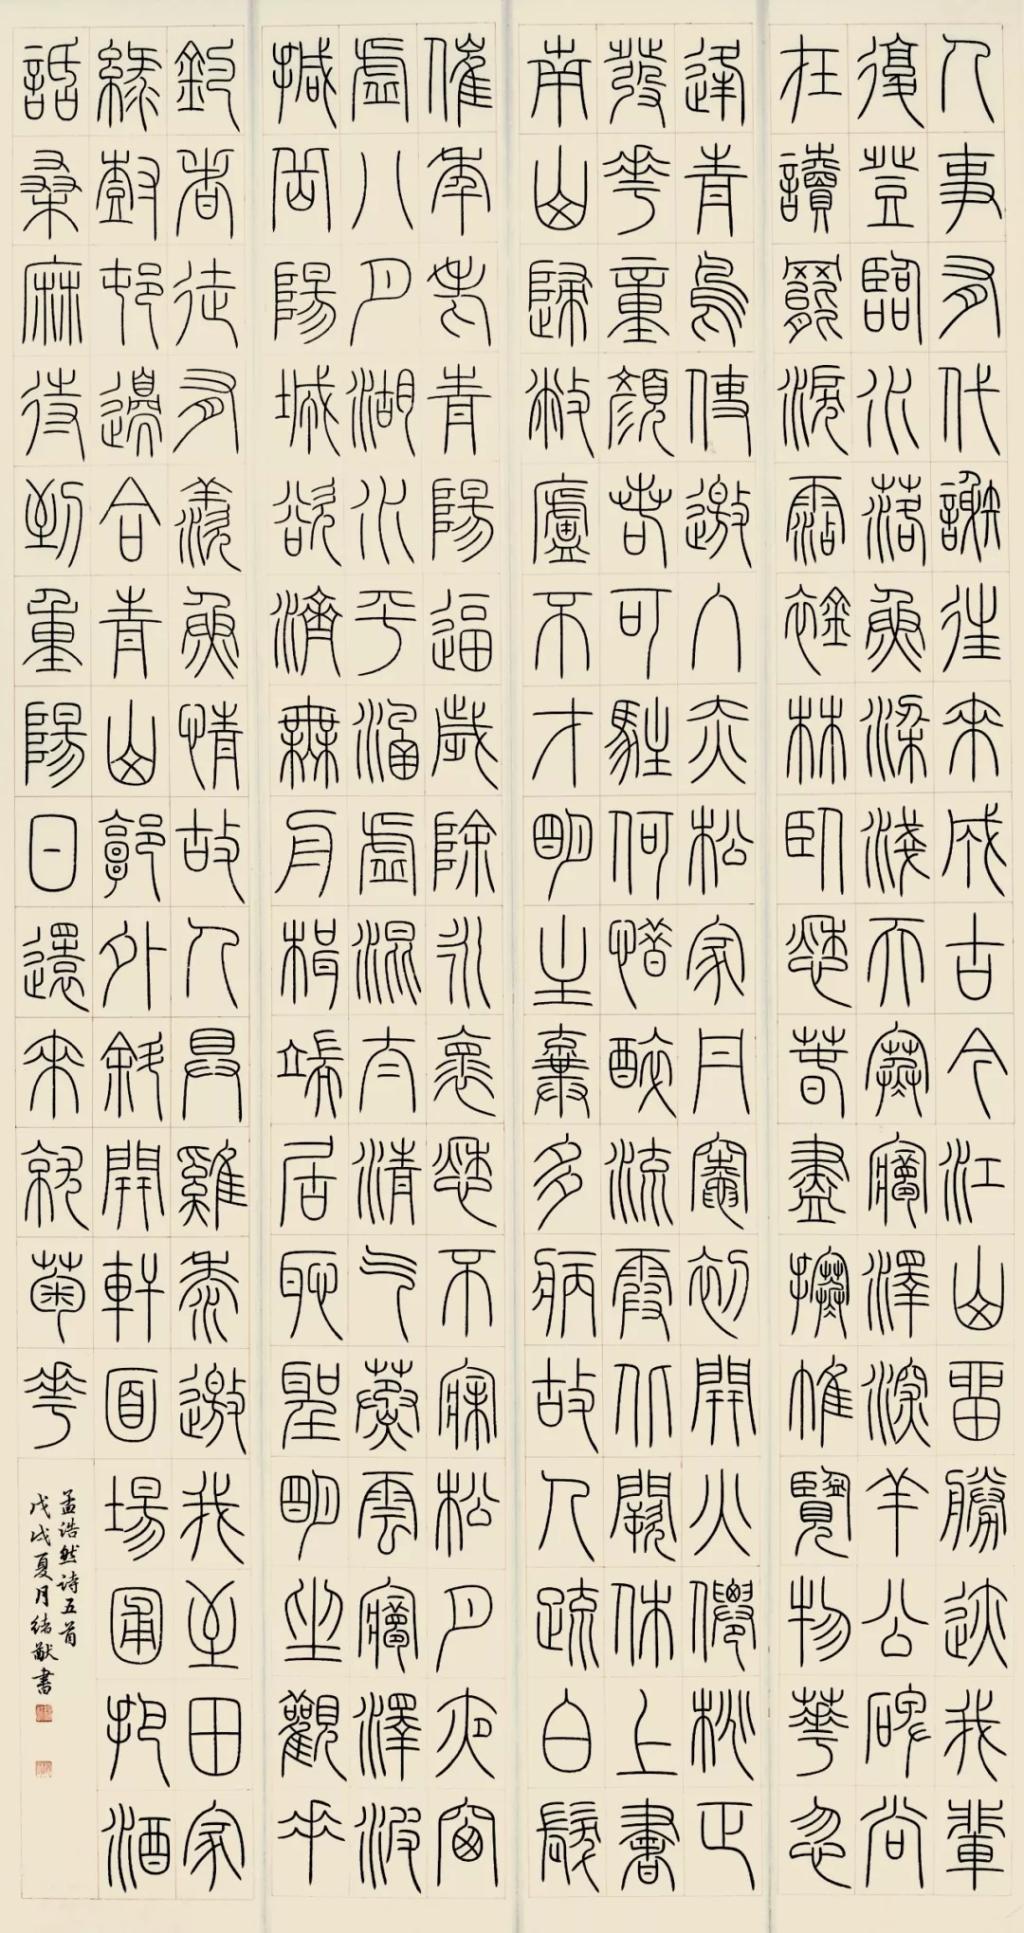 人事有代謝往來成古今江山留勝迹我輩
復登臨水落魚梁淺天寒夢澤深羊公碑尚
在讀罷淚沾襟林臥愁春盡搴帷覽物華忽
逢青鳥使邀入赤松家丹竈初開火僊桃正
發花童顏若可駐何惜醉流霞北闕休上書
南山歸敝廬不才明主棄多病故人疏白髮
催年老青陽逼歲除永懷愁不寐松月夜窗
虛八月湖水平涵虛混太清氣蒸雲夢澤波
撼岳陽城欲濟無舟楫端居恥聖明坐觀垂
釣者徒有羨魚情故人具雞黍邀我至田家
綠樹邨邊合青山郭外斜開軒面場圃把酒
話桑麻待到重陽日還來就菊花
孟浩然诗五首
戊戌夏月绪猷書